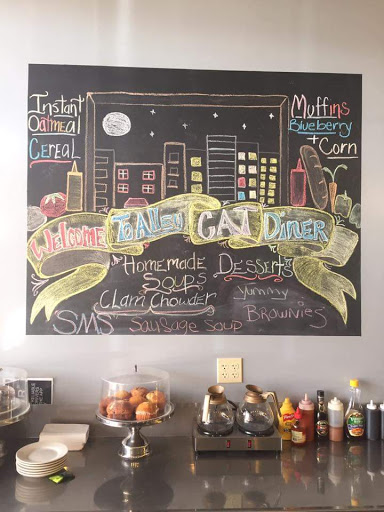 Instant
Oatmeal
Cereal
Muffins
Blueberry
+ Corn
Welcome To Alley CAT Diner
Homemade
Soups
Clam Chowder
SMS Sausage Soup
Desserts
Yummy
Brownies